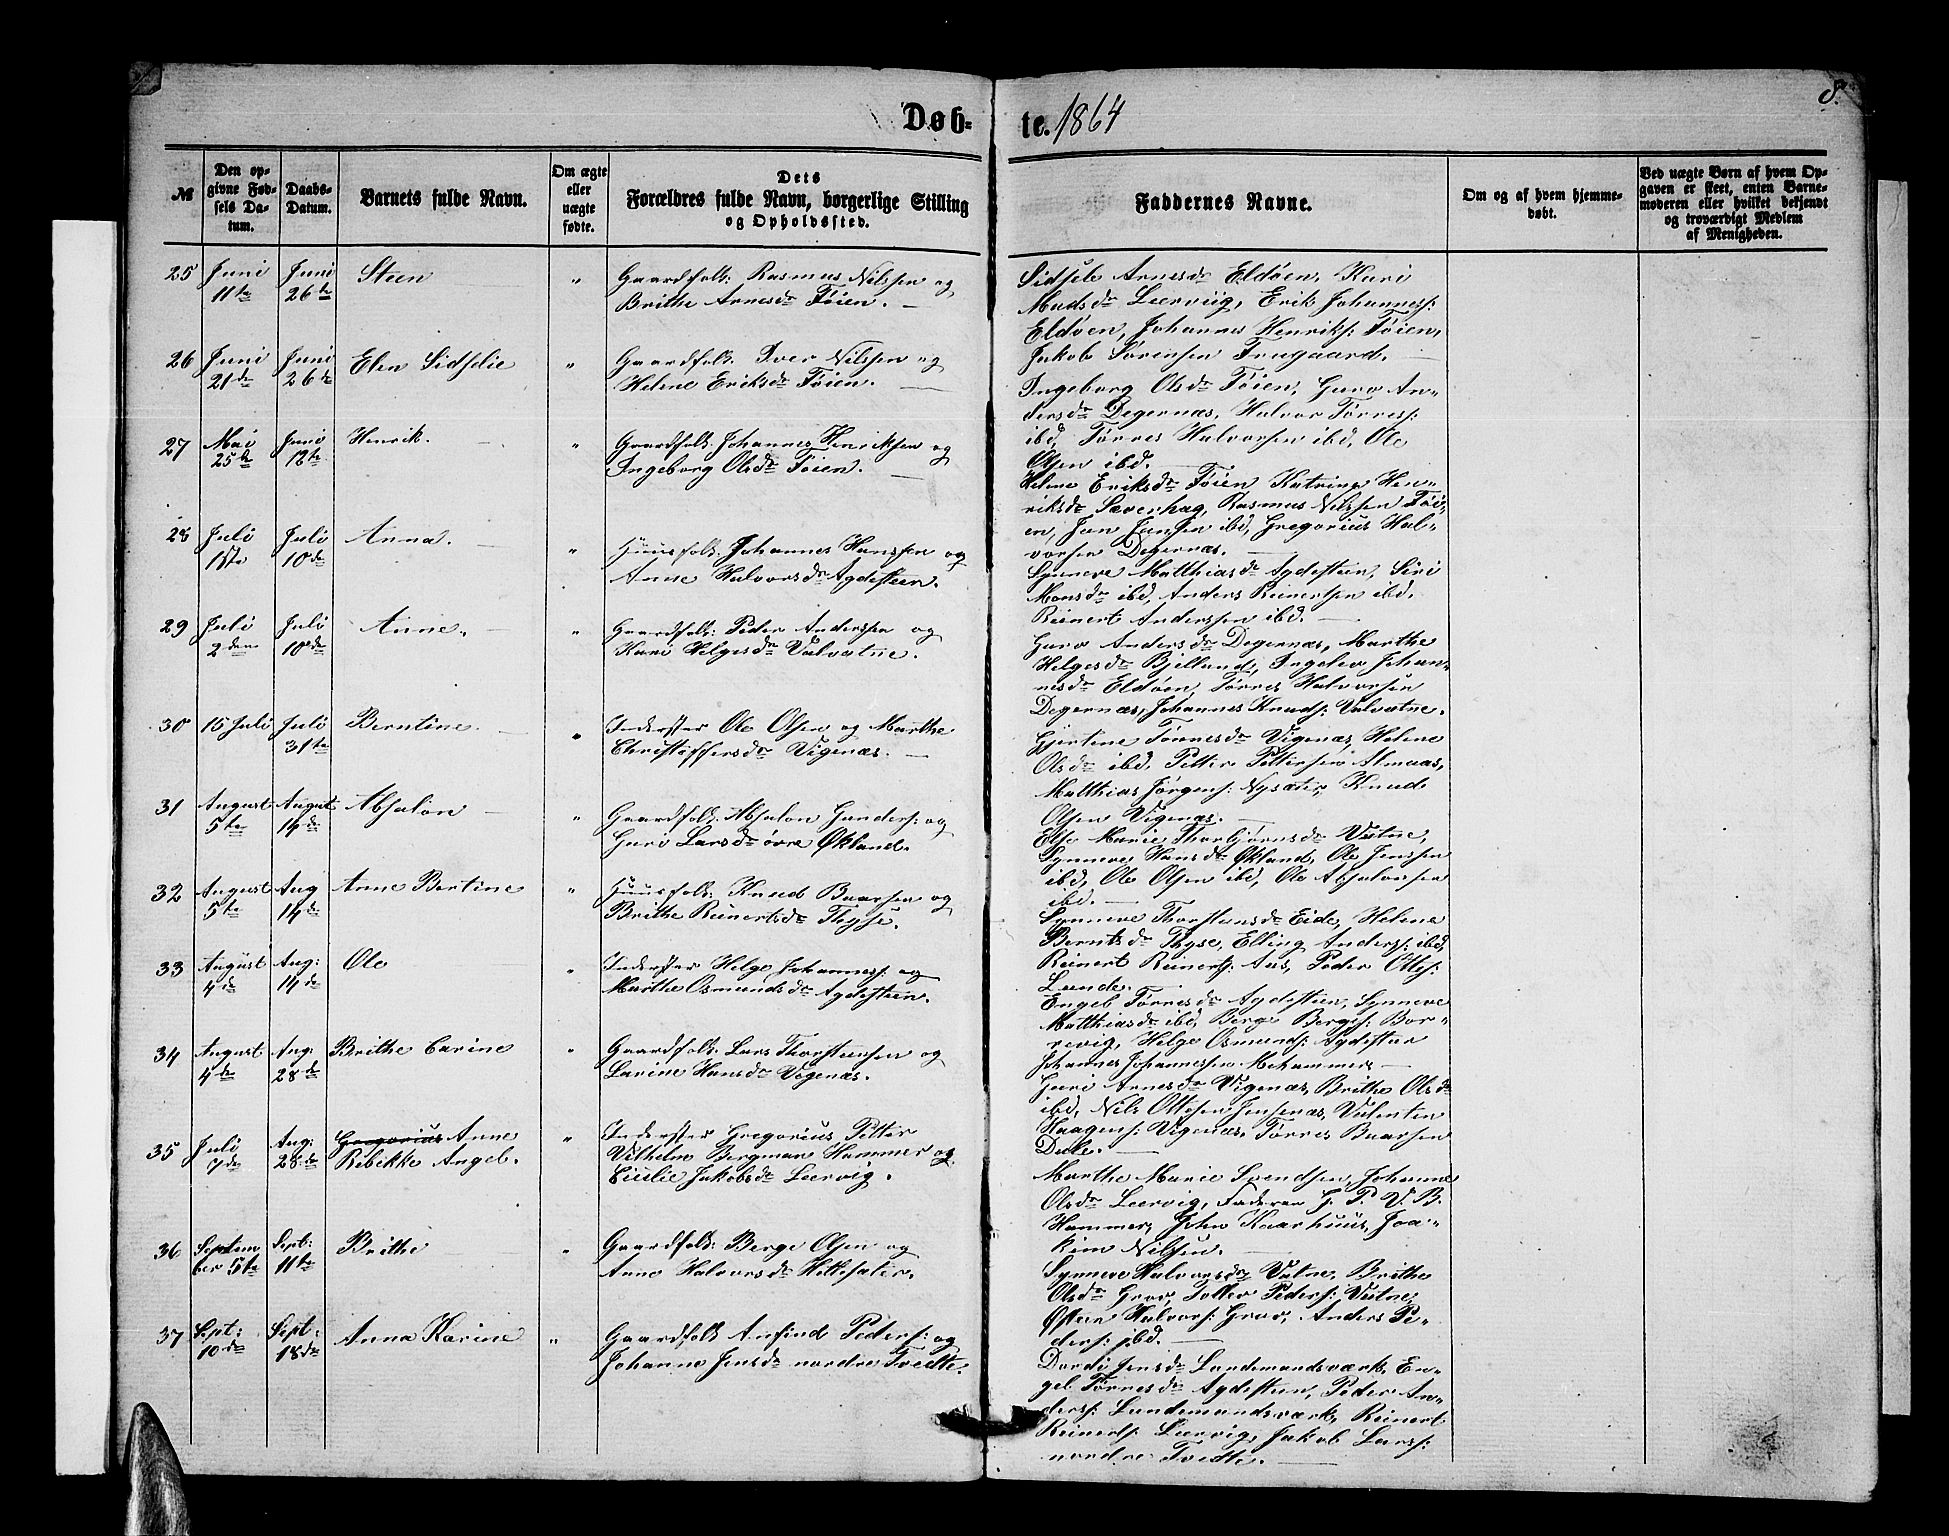 8.
Døb-
te. 1864
№
Den op-
givne Fød-
sels Da-
tum.
Daabs-
Datum.
Barnets fulde Navn.
Om ægte
eller
uægte
fødte.
Dets
Forældres fulde Navn, borgerlige Stilling
og Opholdssted.
Faddernes Navne.
Om og af hvem hjemme-
døbt.
Ved uægte Børn af hvem Op-
gaven er skeet, enten Barne-
moderen eller hvilket bekjendt
og troværdigt Medlem
af Menigheden.
25 Juni Juni Steen " Gaardfolk: Rasmus Nilssen og
11te 26de Brithe Arnesdr Tøien.
Sidsele Arnesdr Eldøen, Kari
Madsdr Leervig, Erik Johanness:
Eldøen, Johannes Henriks: Tøien,
Jakob Sørensen Frugaard.
26 Juni Juni Elen Sidselie " Gaardfolk: Iver Nilssen og
21de 26de Helene Eriksdr Tøien.
Ingeborg Olsdr Tøien, Guro An-
dersdr Degernæs, Halvor Tørress:
ibd, Tørres Halvorsen ibd, Ole
Olsen ibd.
27 Mai Juni Henrik. " Gaardfolk: Johannes Henriksen og
25de 12te Ingeborg Olsdr Tøien.
Helene Eriksdr Tøien Katrine Hen-
riksdr Sæverhag, Rasmus Nilssen Tøi-
en, Jan Jansen ibd, Gregorius Hal-
vorsen Degernæs.
28 Juli Juli Anna. " Huusfolk: Johannes Hanssen og
1ste 10de Anne Halvorsdr Agdesteen.
Synneve Matthiasdr Agdesteen, Siri
Monsdr ibd, Anders Reinertsen ibd,
Reinert Anderssen ibd.
29 Juli Juli Anne. " Gaardfolk: Peder Anderssen og
2den 10de Kari Helgesdr Valvatne.
Guro Andersdr Degernæs, Marthe
Helgesdr Bjelland, Ingelev Johan-
nesdr Eldøen, Tørres Halvorsen
Degernæs, Johannes Knuds: Valvatne.
30 15 Juli Juli Berntine " Inderster Ole Olsen og Marthe
31te Christoffersdr Vigenæs.
Gjertine Tørresdr Vigenæs, Helene
Olsdr ibd, Petter Pettersen Almaas,
Matthias Jørgens: Nysæter, Knud
Olsen Vigenæs.
31 August August Absalon " Gaardfolk: Absalon Gunders: og
5te 14de Guri Larsdr øvre Økland.
Else Marie Thorbjørnsdr Vatne,
Synneve Hansdr Økland, Ole Jenssen
ibd, Ole Olsen ibd, Ole Absalonsen
ibd.
32 August Aug Anne Bertine " Huusfolk: Knud Baarsen og
5te 14de Brithe Reinertsdr Thyse.
Synneve Thorstensdr Eide, Helene
Berntsdr Thyse, Elling Anders: ibd,
Reinert Reinerts: Aas, Peder Ottes:
Lunde.
33 August Aug: Ole " Inderster Helge Johanness: og
4de 14de Marthe Osmundsdr Agdesteen.
Engel Tørresdr Agdesteen, Synneve
Matthiasdr ibd, Berge Berges: Bor-
revig, Helge Osmunds: Agdesteen
Johannes Johannessen Mehammer.
34 August Aug. Brithe Carine " Gaardfolk: Lars Thorstensen og
4de 28de Larine Hansdr Vigenæs.
Guri Arnesdr Vigenæs, Brithe Olsdr
ibd, Nils Ottesen Jensenæs, Valentin
Haagens: Vigenæs, Tørres Baarsen
Dale.
35 Juli Aug: Gregorius Anne " Inderster Gregorius Petter
7de 28de Rebekke Angel. Vilhelm Bergman Hammer og
Cicilie Jakobsdr Leervig.
Marthe Marie Svendsen, Johanne
Olsdr Leervig, Faderen G. P. V. B.
Hammer, John Kaarhuus, Joa-
kim Nilsen.
36 Septem Sept: Brithe " Gaardfolk: Berge Olsen og
ber 5te 11te Anne Halvorsdr Hettesæter.
Synneve Halvorsdr Vatne, Brithe
Olsdr Grov, Tollev Peders: Vatne,
Østen Halvors: Grov, Anders Pe-
ders: ibd.
37 Sept: Sept: Anna Karine " Gaardfolk Anfind Peders: og
10de 18de Johanne Jensdr nordre Tvedte.
Dordi Jensdr Landemandsværk, En-
gel Tørresdr Agdesteen, Peder An-
ders: Landemandsværk, Reinert
Reinerts: Leervig, Jakob Lars:
nordre Tvedte.